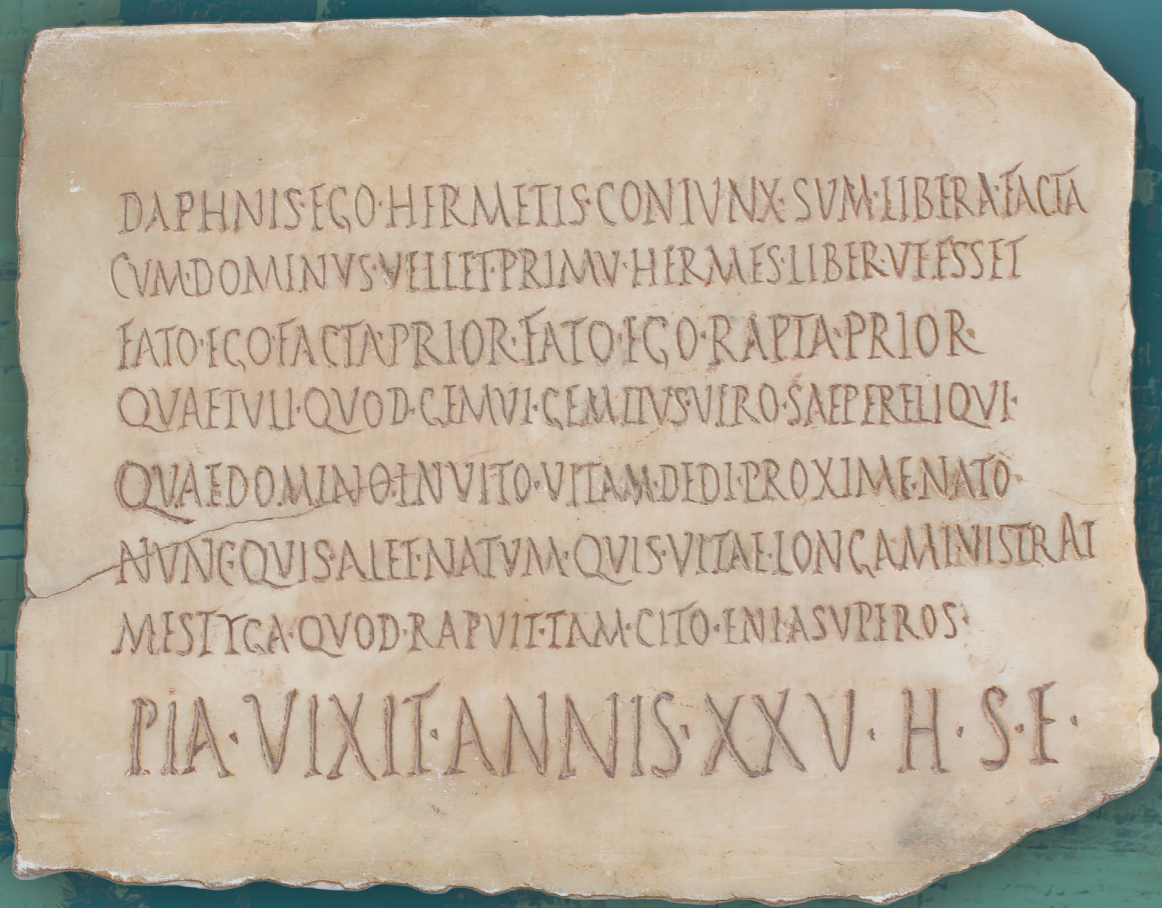 DAPHNIS·EGO·HERMETIS·CONIVNX·SVM·LIBERA·FACTA
CVM·DOMINVS·VELLET·PRIMV·HERMES·LIBER·VT ESSET
FATO·EGO FACTA·PRIOR·FATO·EGO·RAPTA·PRIOR·
QVAE TVLI·QVOD·GEMVI·GEMITVS·VIRO·SAEPE RELIQVI·
QVAE DOMINO·INVITO·VITAM·DEDI·PROXIME·NATO·
NVNC·QVIS·ALET·NATVM·QVIS·VITAE·LONGA·MINISTRAT
ME STYGA·QVOD·RAPVIT·TAM·CITO·ENI·A SVPEROS·
PIA·VIXIT·ANNIS·XXV·H·S·E·